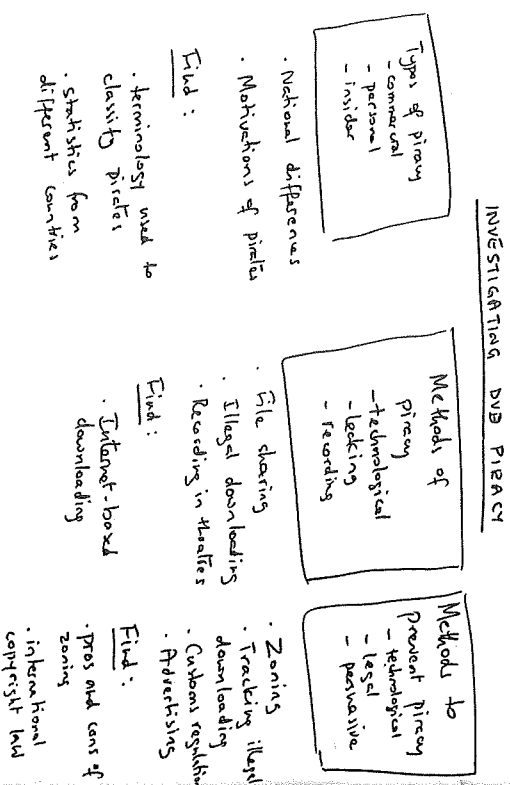 INVESTIGATING DVD PIRACY
Types of piracy
- commercial
- personal
- insider
· National differences
· Motivations of pirates
Find :
· terminology used to
classify pirates
· statistics from
different countries
Methods of
piracy
- technological
- leaking
- recording
· File sharing
· Illegal downloading
· Recording in theatres
Find :
· Internet-based
downloading
Methods to
prevent piracy
- technological
- legal
- persuasive
· Zoning
· Tracking illegal
downloading
· Customs regulation
· Advertising
Find :
· pros and cons of
zoning
· international
copyright law